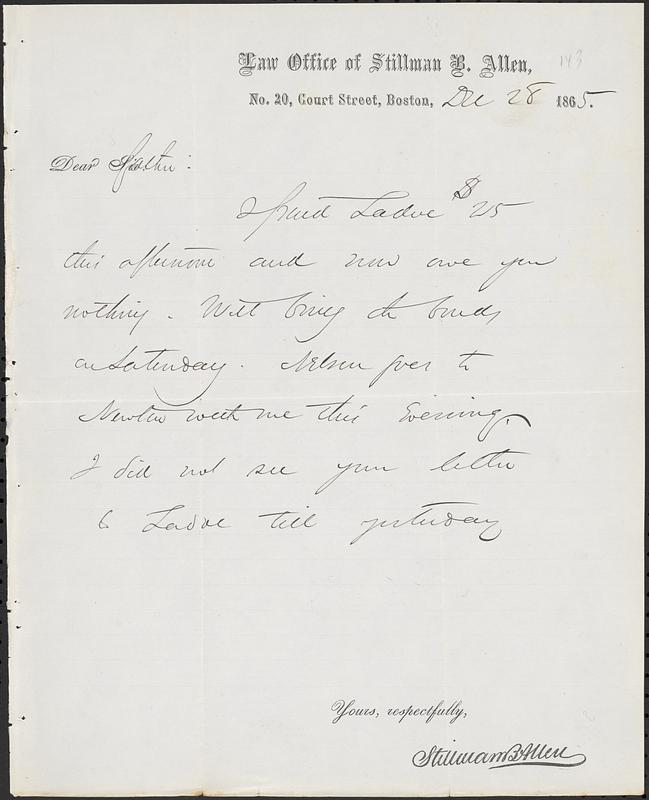 143
Law Office of Stillman B. Allen,
No. 20, Court Street, Boston, Dec 28 1865.
Dear
I paid Ladue $25
this afternoon and now owe you
nothing. Will bring the bonds
on Saturday. Nelson goes to
Newton with me this Evening.
I did not see your letter
to Ladue till yesterday
Yours, respectfully,
Stillman B Allen